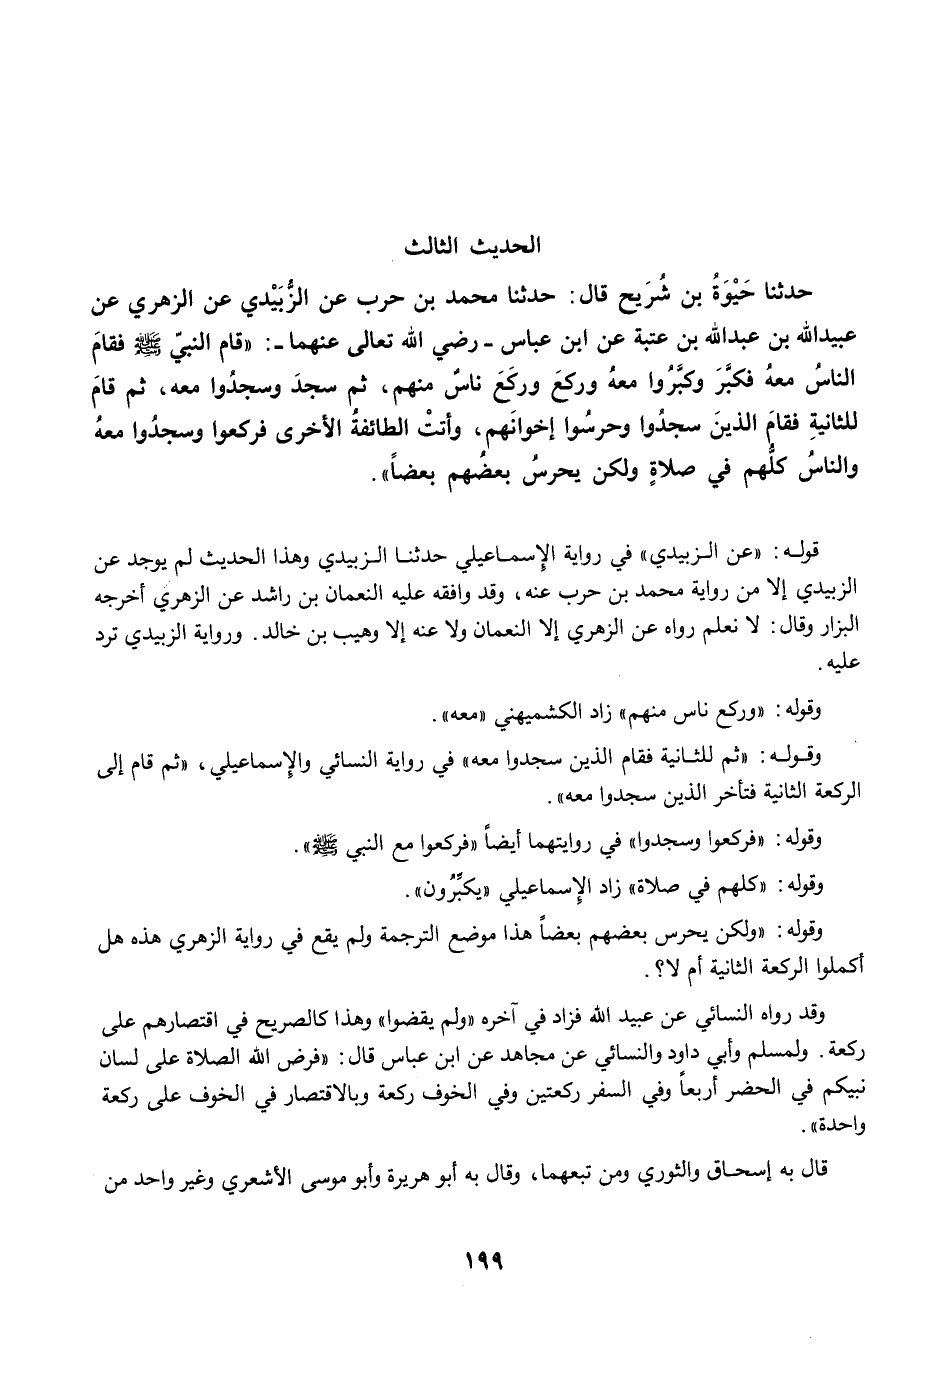 الحديث الثالث
حدثنا حَيْوَةُ بن شُرَيح قال: حدثنا محمد بن حرب عن الزُّبَيْدي عن الزهري عن
عبيدالله بن عبدالله بن عتبة عن ابن عباس ـ رضي الله تعالى عنهما ـ: «قام النبيّ ﷺ فقامَ
الناسُ معهُ فكبَّرَ وكبَّرُوا معهُ وركعَ وركَعَ ناسٌ منهم، ثم سجدَ وسجدُوا معه، ثم قامَ
للثانيةِ فقامَ الذينَ سجدُوا وحرسُوا إخوانَهم، وأتتْ الطائفةُ الأخرى فركعوا وسجدُوا معهُ
والناسُ كلُّهم في صلاةٍ ولكن يحرسُ بعضُهم بعضاً».
قولـه: «عن الـزبيدي» في رواية الإِسمـاعيلي حدثنـا الـزبيدي وهذا الحديث لم يوجد عن
الزبيدي إلا من رواية محمد بن حرب عنه، وقد وافقه عليه النعمان بن راشد عن الزهري أخرجه
البزار وقال: لا نعلم رواه عن الزهري إلا النعمان ولا عنه إلا وهيب بن خالد. ورواية الزبيدي ترد
عليه.
وقوله: «وركع ناس منهم» زاد الكشميهني «معه».
وقـولـه: «ثم للثـانية فقام الذين سجدوا معه» في رواية النسائي والإِسماعيلي، «ثم قام إلى
الركعة الثانية فتأخر الذين سجدوا معه».
وقوله: «فركعوا وسجدوا» في روايتهما أيضاً «فركعوا مع النبي ﷺ».
وقوله: «كلهم في صلاة» زاد الإِسماعيلي «يكبِّرُون».
وقوله: «ولكن يحرس بعضهم بعضاً هذا موضع الترجمة ولم يقع في رواية الزهري هذه هل
أكملوا الركعة الثانية أم لا؟.
وقد رواه النسائي عن عبيد الله فزاد في آخره «ولم يقضوا» وهذا كالصريح في اقتصارهم على
ركعة. ولمسلم وأبي داود والنسائي عن مجاهد عن ابن عباس قال: «فرض الله الصلاة على لسان
نبيكم في الحضر أربعاً وفي السفر ركعتين وفي الخوف ركعة وبالاقتصار في الخوف على ركعة
واحدة».
قال به إسحـاق والثوري ومن تبعهما، وقال به أبو هريرة وأبو موسى الأشعري وغير واحد من
١٩٩